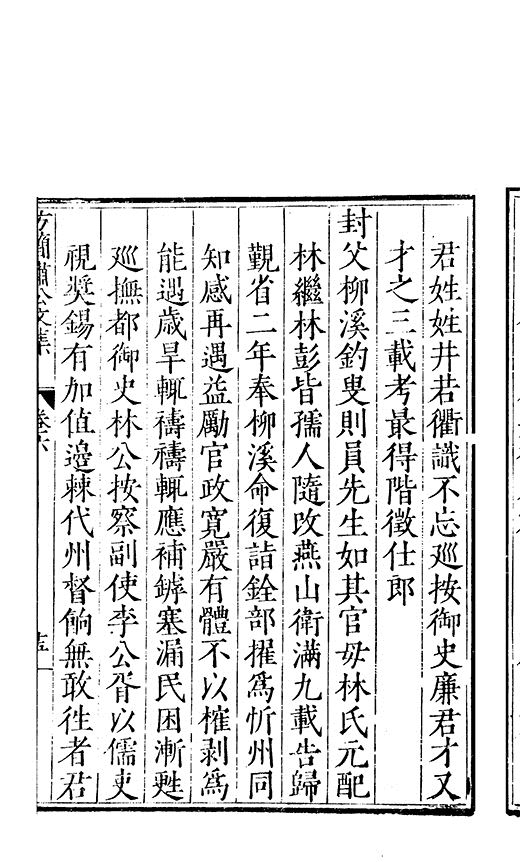 君姓姓井若衢識不忘廵按御史廉君才又
才之三載考最得階徵仕郎
封父柳溪釣叟則員先生如其官母林氏元配
林繼林彭皆孺人隨改燕山衛滿九載告歸
覲省二年奉柳溪命復詣銓部擢爲忻州同
知感再遇益勵官政寛嚴有體不以榷剥爲
能遇歲旱輒禱禱輒應補鏬塞漏民困漸甦
廵撫都御史林公按察副使李公胥以儒吏
視奬錫有加值邉棘代州督餉無敢徃者君
方簡肅公文集
卷六